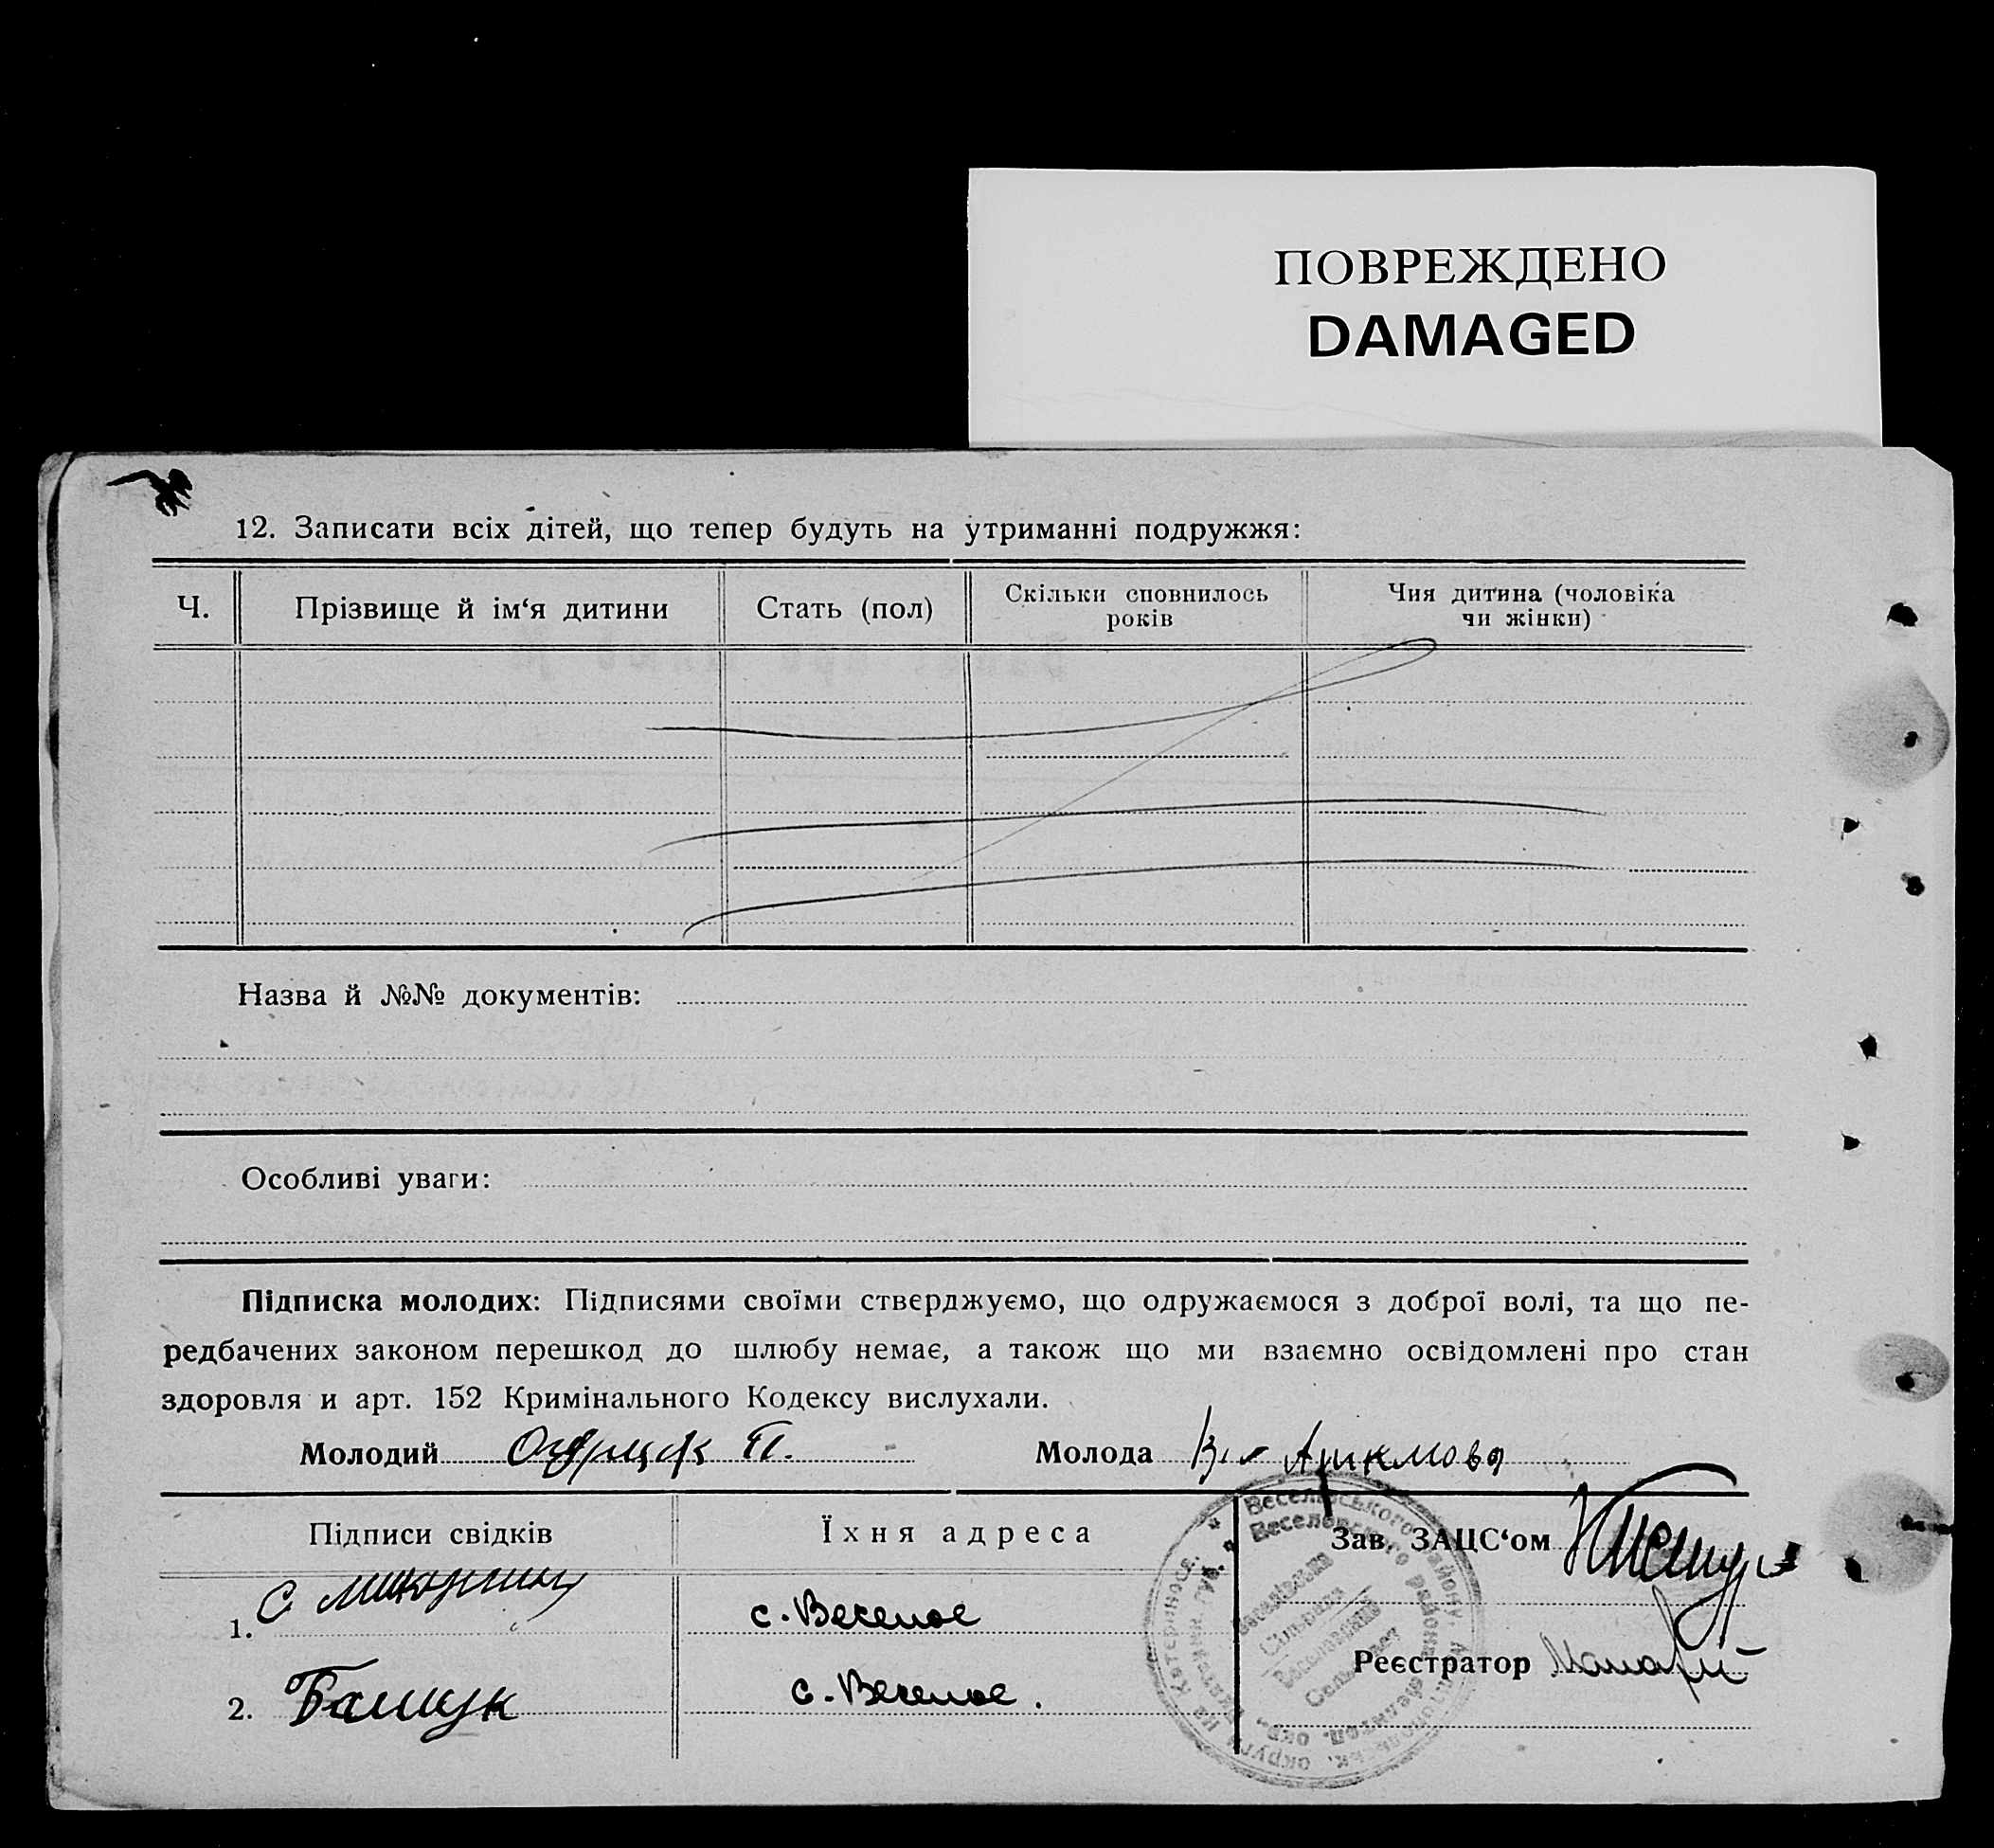 ПОВРЕЖДЕНО
DAMAGED
12. Записати всіх дітей, що тепер будуть на утриманні подружжя:
Ч. Прізвище й ім‘я дитини Стать (пол) Скільки сповнилось років Чия дитина (чоловіка чи жінки)
Назва й №№ документів:
Особливі уваги:
Підписка молодих: Підписями своїми стверджуємо, що одружаємося з доброї волі, та що пе-
редбачених законом перешкод до шлюбу немає, а також що ми взаємно освідомлені про стан
здоровля и арт. 152 Кримінального Кодексу вислухали.
Молодий Молода
Підписи свідків Їхня адреса Зав. ЗАЦС‘ом
1. с. Веселое
Реєстратор
2. с. Веселое.
Веселівського району,
Веселовского района
Сільрада